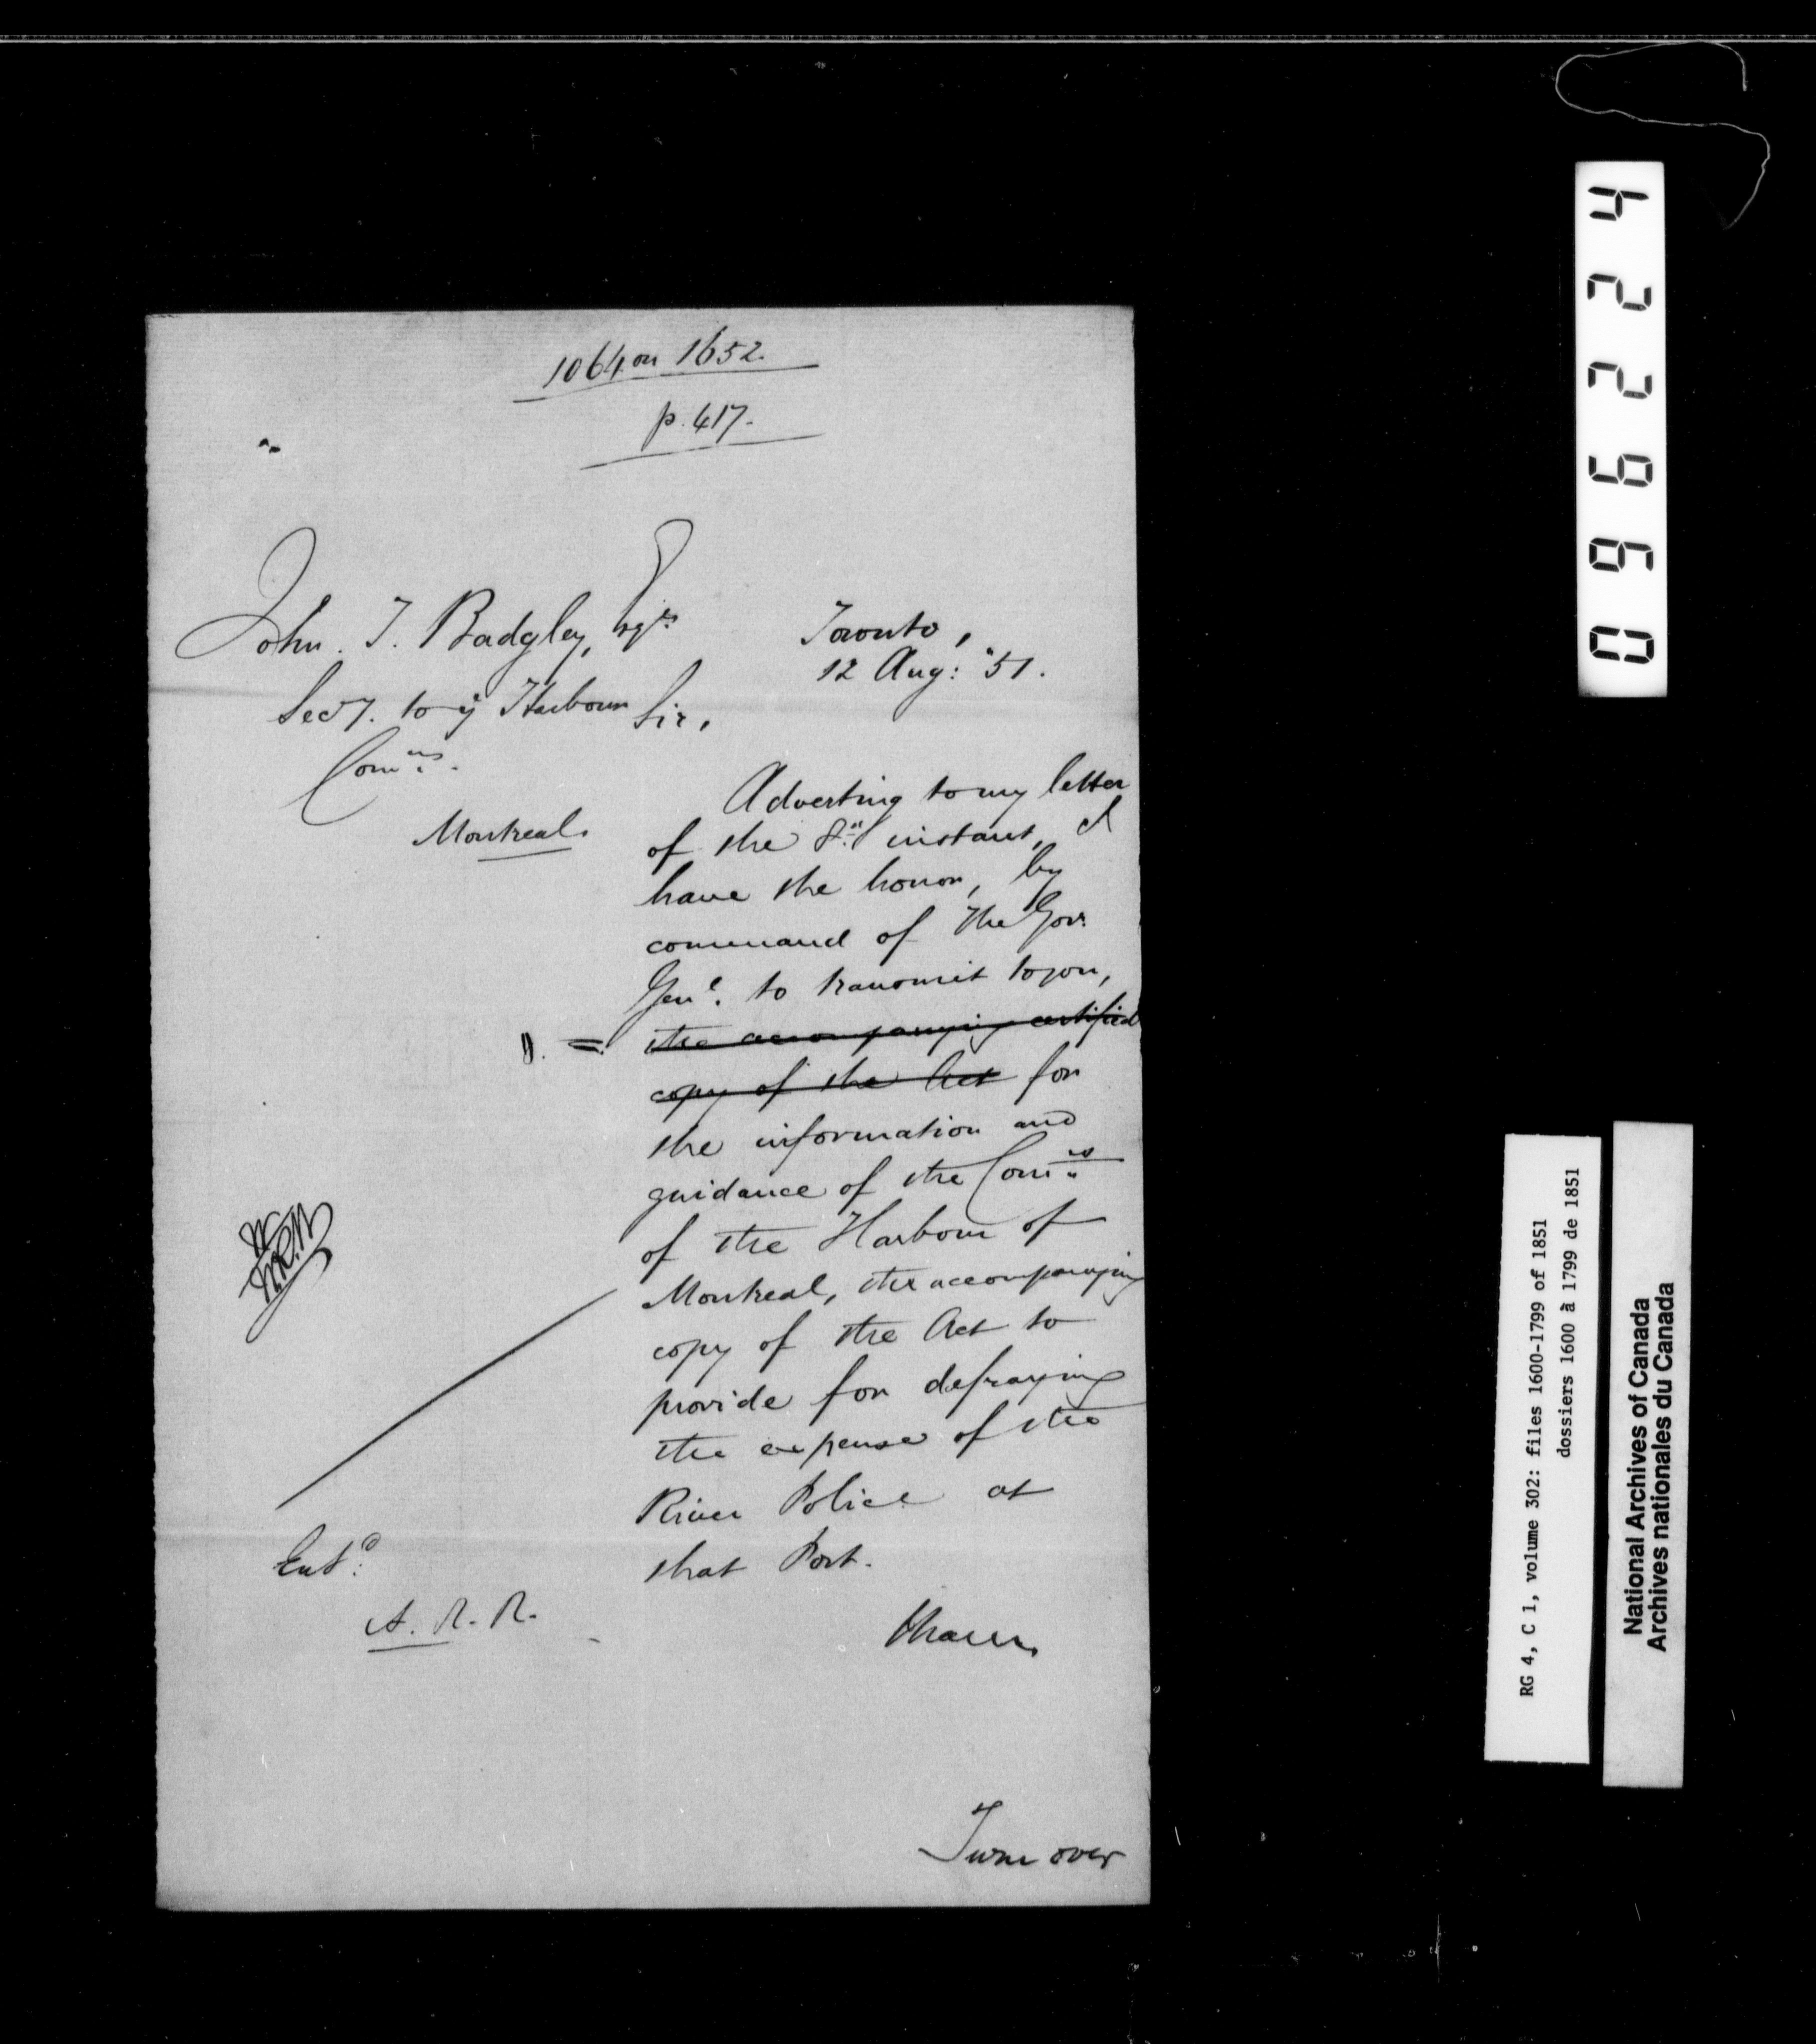 1064 on 1652.
p. 417.
John. T. Badgley, Esqre
Secy. to ye Harbour
Comrs.
Montreal.
Toronto,
12 Aug: '51.
Sir,
Adverting to my letter
of the 8th instant, I
have the honor, by
command of The Govr.
Genl. to transmit to you,
the accompanying certified
copy of the Act for
the information and
guidance of the Comrs
of the Harbour of
Montreal, the accompanying
copy of the Act to
provide for defraying
the expense of the
River Police at
that Port.
I have
Entd.
A. R. R.
Turn over
096224
RG 4, C 1, volume 302: files 1600-1799 of 1851
dossiers 1600 à 1799 de 1851
National Archives of Canada
Archives nationales du Canada